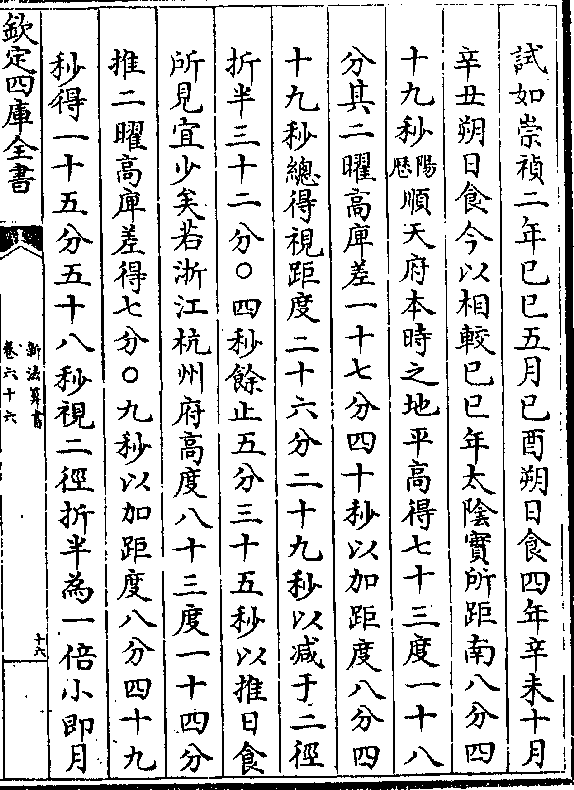 試如崇禎二年己巳五月己酉朔日食四年辛未十月
辛丑朔日食今以相較己巳年太陰實所距南八分四
十九秒陽歷順天府本時之地平高得七十三度一十八
分其二曜高庳差一十七分四十秒以加距度八分四
十九秒總得視距度二十六分二十九秒以減于二徑
折半三十二分〇四秒餘止五分三十五秒以推日食
所見宜少矣若浙江杭州府高度八十三度一十四分
推二曜高庳差得七分〇九秒以加距度八分四十九
秒得一十五分五十八秒視二徑折半為一倍小即月
欽定四庫全書
新法算書
卷六十六
十六